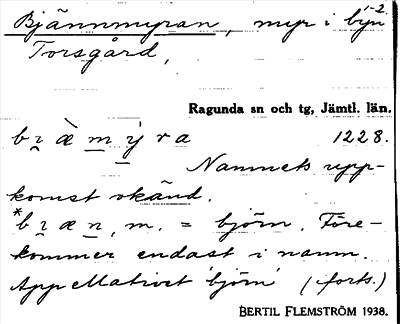 1-2.
Bjännmyran, myr i byn
Torsgård,
Ragunda sn och tg, Jämtl. län.
bɿæ̀mýra 1228.
Namnets upp-
komst okänd.
*bɿæn, m. = björn. Före-
kommer endast i namn.
Appellativet 'björn' (forts.)
BERTIL FLEMSTRÖM 1938.